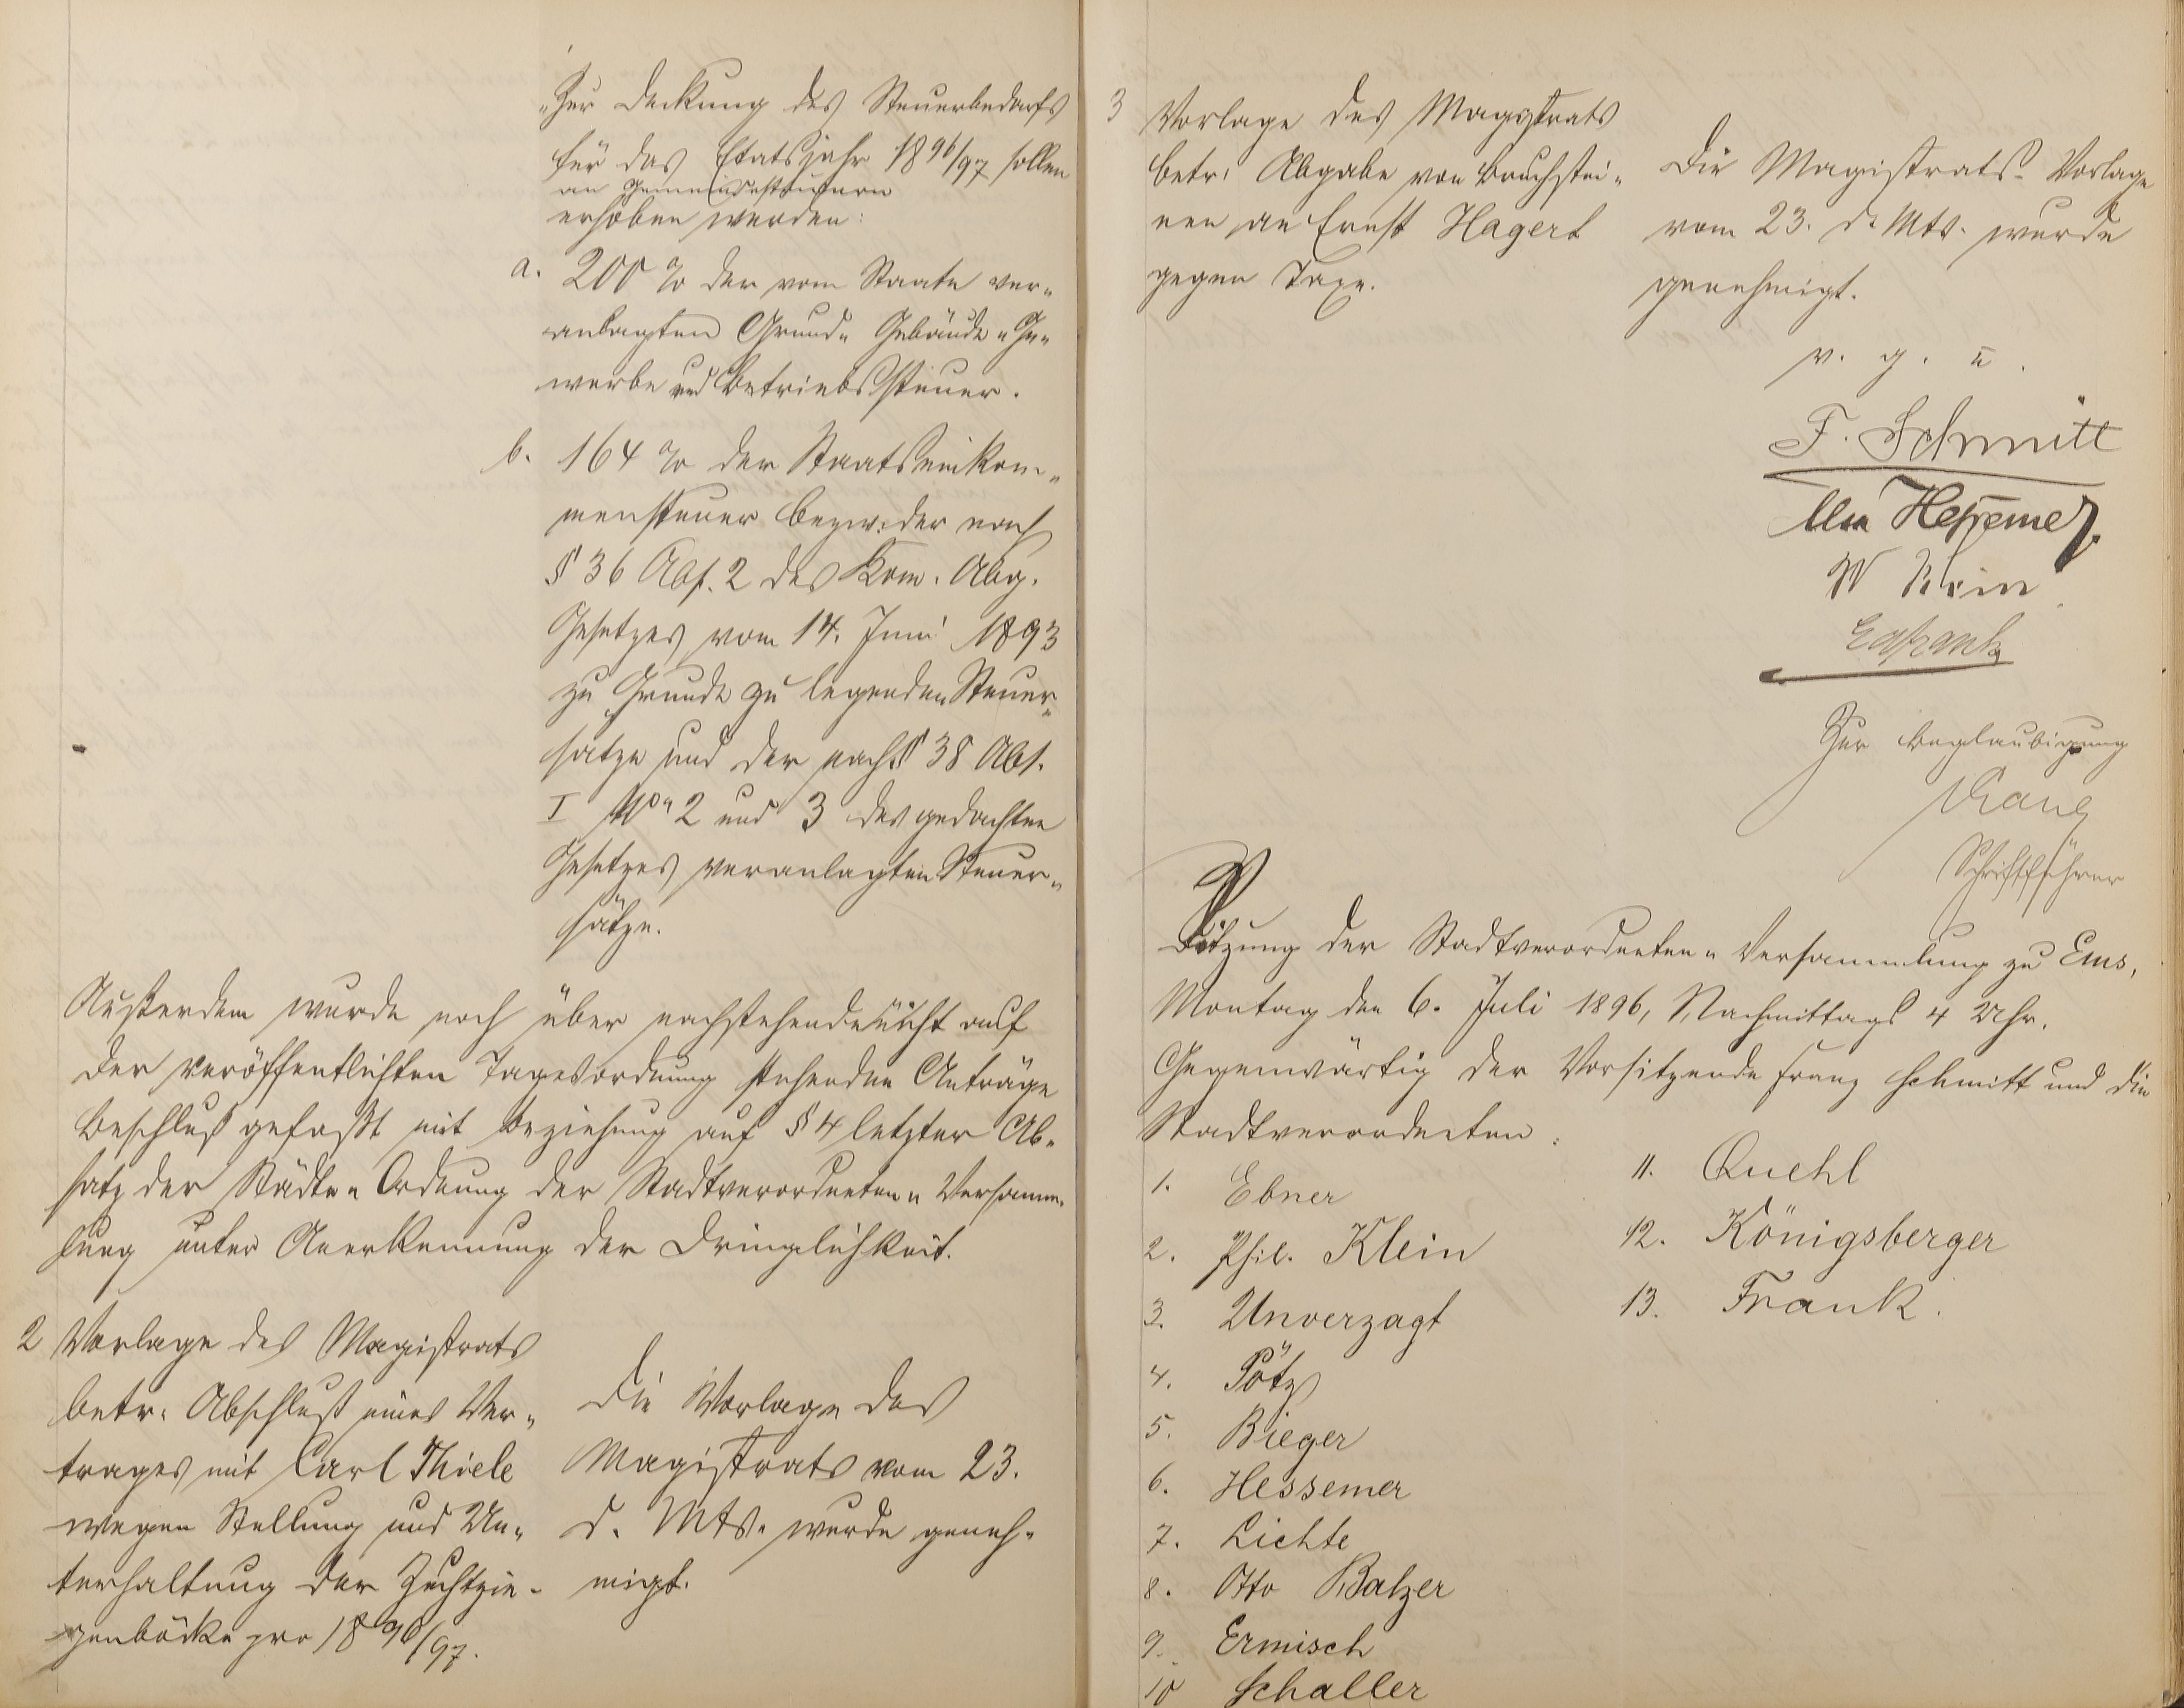 "Zur Deckung des Steuerbedarfs
für das Etatsjahr 1896/97 sollen
an Gemeindesteuern
erhoben werden:
a. 200 % der vom Staate ver„
anlagten Grund„ Gebäude„ Ge„
werbe und Betriebssteuer.
b. 164 % der Staatseinkom„
mensteuer bezw. der nach
§ 36 Abs. 2 des Kom. Abg.
Gesetzes vom 14. Juni 1893
zu Grunde zu legenden Steuer„
sätze und der nach § 38 Abs.
I No 2 und 3 des gedachten
Gesetzes veranlagten Steuer„
sätze.
Außerdem wurde noch über nachstehende nicht auf
der veröffentlichten Tagesordnung stehenden Anträge
Beschluß gefaßt mit Beziehung auf § 4 letzter Ab„
satz der Städte„Ordnung der Stadtverordneten„Versamm„
lung unter Anerkennung der Dringlichkeit.
2 Vorlage des Magistrats
betr. Abschluß eines Ver„
trages mit Carl Thiele
wegen Stellung und Un„
terhaltung der Zuchtzie„
genböcke pro 1896/97.
Die Vorlage des
Magistrats vom 23.
d. Mts. wurde geneh„
migt.
3 Vorlage des Magistrats
betr. Abgabe von Bruchstei„
nen an Ernst Hagert
gegen Taxe.
Die Magistrats-Vorlage
vom 23. d. Mts. wurde
genehmigt.
v. g. u.
F. Schmitt
Hessemer
W Klein
Ed Frank
Zur Beglaubigung
Schriftführer
Sitzung der Stadtverordneten„Versammlung zu Ems,
Montag den 6. Juli 1896, Nachmittags 4 Uhr.
Gegenwärtig der Vorsitzende Franz Schmitt und die
Stadtverordneten:
1. Ebner
2. Phil. Klein
3. Unverzagt
4. Pötz
5. Bieger
6. Hessemer
7. Lichte
8. Otto Balzer
9. Ermisch
10 Schaller
11. Quehl
12. Königsberger
13. Frank.